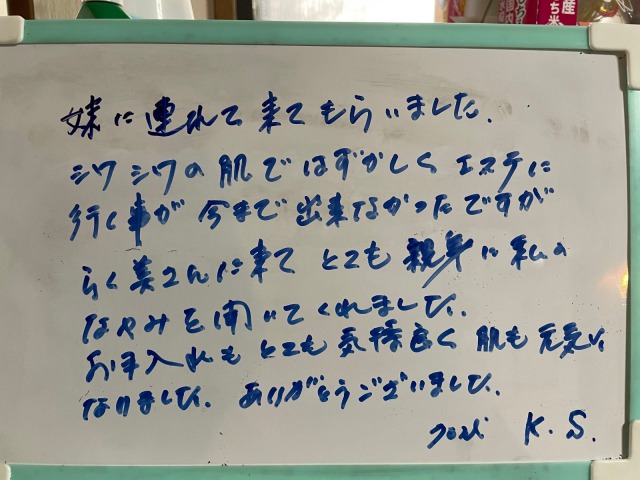 産
ち米
国内
妹に連れて来てもらいました.
シワシワの肌ではずかしくエステに
行く事が今まで出来なかったですが
らく美さんに来てとても親身に私の
なやみを聞いてくれました.
お手入れもとても気持良く肌も元気に
なりました. ありがとうございました.
K.S.